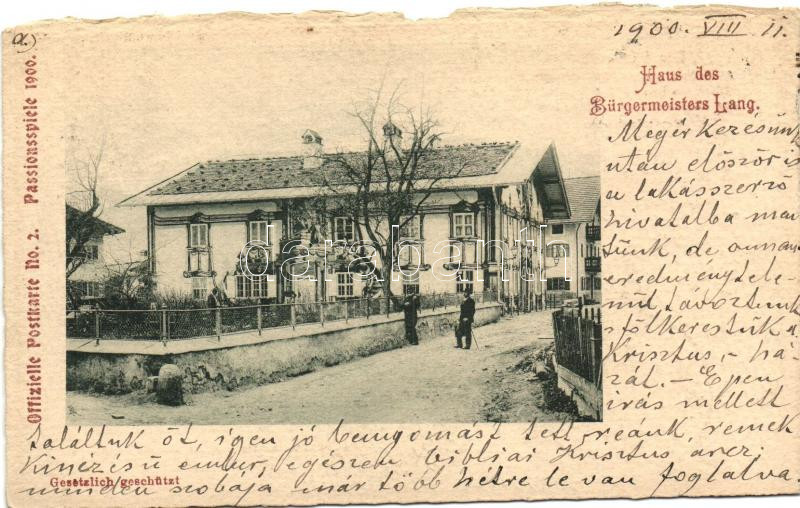 a.)
1900. VIII 11.
Offizielle Postkarte No. 2. Passionsspiele 1900.
Haus des
Bürgermeisters Lang.
Megérkezésünk
után először is
a lakásszerző
hivatalba men
tünk, de onnan
eredménytele-
nül távoztunk
s fölkerestük a
Krisztus, - há-
zát. - Épen
írás mellett
találtuk őt, igen jó benyomást tett reánk, remek
kinézésü ember, egészen bibliai Krisztus arcz.
minden szobája már több hétre le van foglalva.
Gesetzlich geschützt
darabanth